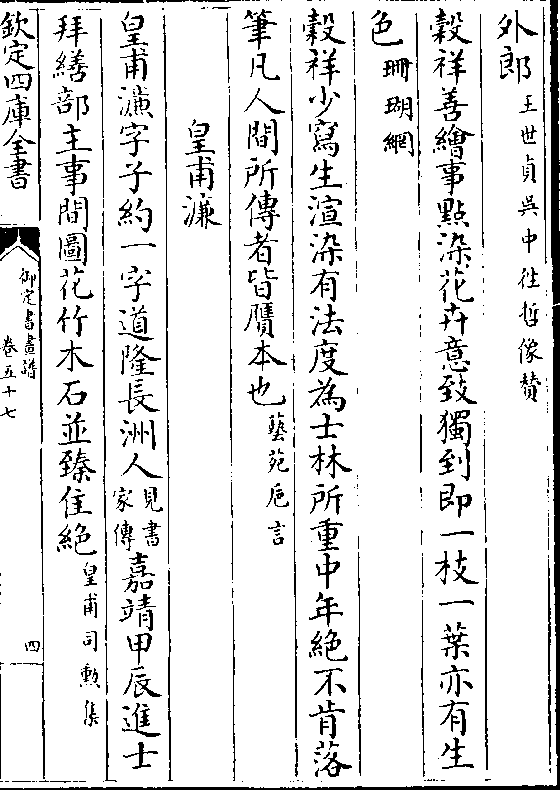 外郎王世貞吳中徃哲像贊
穀祥善繪事點染花卉意致獨到即一枝一葉亦有生
色珊瑚網
穀祥少寫生渲染有法度為士林所重中年絶不肯落
筆凡人間所傳者皆贋本也藝苑巵言
皇甫濂
皇甫濂字子約一字道隆長洲人見書家傳嘉靖甲辰進士
拜繕部主事間圖花竹木石並臻佳絶皇甫司勲集
欽定四庫全書
御定書畫譜
卷五十七
四